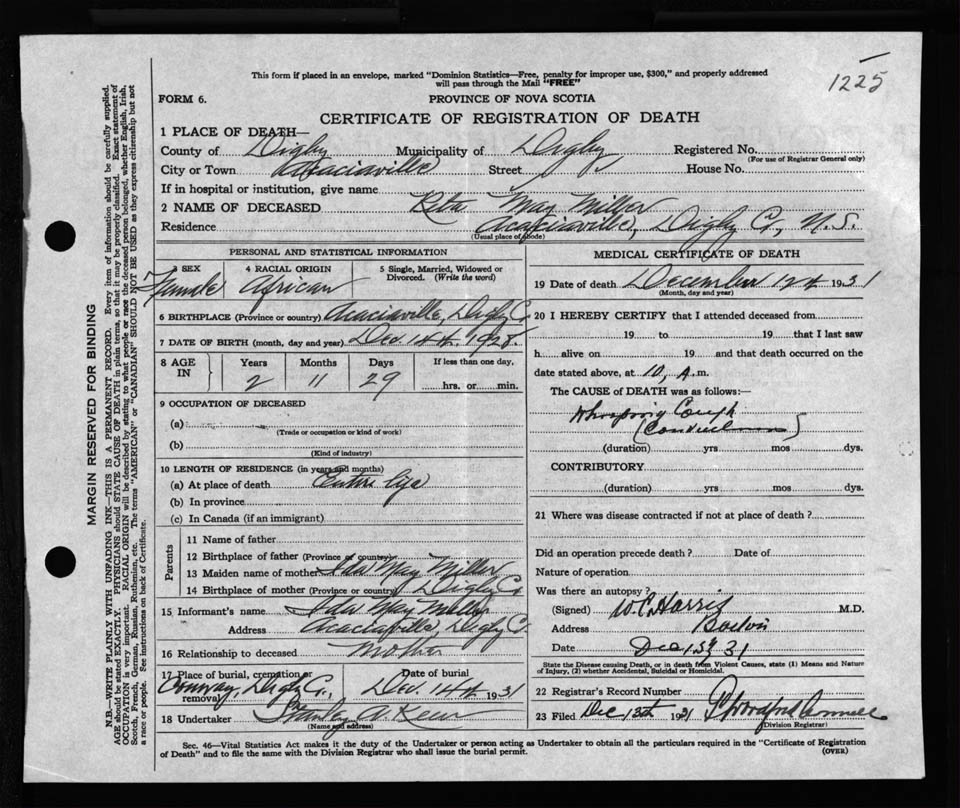 1225
This form if placed in an envelope, marked "Dominion Statistics—Free, penalty for improper use, $300," and properly addressed
will pass through the Mail "FREE"
FORM 6.
PROVINCE OF NOVA SCOTIA
CERTIFICATE OF REGISTRATION OF DEATH
1 PLACE OF DEATH—
County of Digby Municipality of Digby Registered No.
(For use of Registrar General only)
City or Town Acaciaville Street House No.
If in hospital or institution, give name
2 NAME OF DECEASED Reta May Miller
Residence Acaciaville, Digby Co, N.S.
(Usual place of abode)
PERSONAL AND STATISTICAL INFORMATION
3 SEX 4 RACIAL ORIGIN 5 Single, Married, Widowed or Divorced. (Write the word)
Female African
6 BIRTHPLACE (Province or country) Acaciaville, Digby Co.
7 DATE OF BIRTH (month, day and year) Dec. 14th. 1928.
8 AGE IN Years Months Days If less than one day,
2 11 29 hrs. or min.
9 OCCUPATION OF DECEASED
(a)
(Trade or occupation or kind of work)
(b)
(Kind of industry)
10 LENGTH OF RESIDENCE (in years and months)
(a) At place of death Entire life
(b) In province
(c) In Canada (if an immigrant)
Parents
11 Name of father
12 Birthplace of father (Province or country)
13 Maiden name of mother Ida May Miller
14 Birthplace of mother (Province or country) Digby Co.
15 Informant's name Ida May Miller
Address Acaciaville, Digby Co.
16 Relationship to deceased Mother
17 Place of burial, cremation or removal Date of burial
Conway, Digby Co., Dec. 14th 1931
18 Undertaker Stanley A.
(Name and address)
MEDICAL CERTIFICATE OF DEATH
19 Date of death December 12th 1931
(Month, day and year)
20 I HEREBY CERTIFY that I attended deceased from
19 to 19 that I last saw
h alive on 19 and that death occurred on the
date stated above, at 10, A. m.
The CAUSE OF DEATH was as follows:—
Whooping Cough
(Convulsions)
(duration) yrs mos dys.
CONTRIBUTORY
(duration) yrs mos dys.
21 Where was disease contracted if not at place of death?
Did an operation precede death? Date of
Nature of operation
Was there an autopsy?
(Signed) W.C. Harris M.D.
Address
Date Dec 13 31
State the Disease causing Death, or in death from Violent Causes, state (1) Means and Nature
of Injury, (2) whether Accidental, Suicidal or Homicidal.
22 Registrar's Record Number
23 Filed Dec 13th 1931
(Division Registrar)
Sec. 46—Vital Statistics Act makes it the duty of the Undertaker or person acting as Undertaker to obtain all the particulars required in the "Certificate of Registration
of Death" and to file the same with the Division Registrar who shall issue the burial permit.
(OVER)
MARGIN RESERVED FOR BINDING
N.B.—WRITE PLAINLY WITH UNFADING INK—THIS IS A PERMANENT RECORD. Every item of information should be carefully supplied.
AGE should be stated EXACTLY. PHYSICIANS should STATE CAUSE OF DEATH in plain terms, so that it may be properly classified. Exact statement of
OCCUPATION is very important. RACIAL ORIGIN will be described by stating to what people or race the deceased person belonged, whether English, Irish,
Scotch, French, German, Russian, Ruthenian, etc. The terms "AMERICAN" or "CANADIAN" SHOULD NOT BE USED as they express citizenship but not
a race or people. See instructions on back of Certificate.